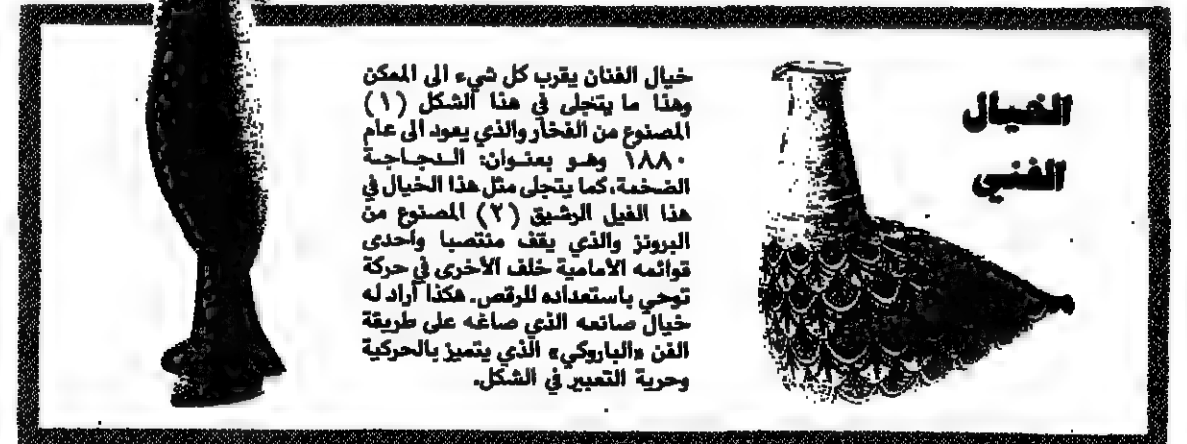 الخيال
الفني
خيال الفنان يقرب كل شيء الى الممكن
وهذا ما يتجلى في هذا الشكل (١)
المصنوع من الفخار والذي يعود الى عام
١٨٨٠ وهو بعنوان: الدجاجة
الضخمة، كما يتجلى مثل هذا الخيال في
هذا الفيل الرشيق (٢) المصنوع من
البرونز والذي يقف منتصبا واحدى
قوائمه الأمامية خلف الأخرى في حركة
توحي باستعداده للرقص. هكذا أراد له
خيال صانعه الذي صاغه على طريقة
الفن «الباروكي» الذي يتميز بالحركية
وحرية التعبير في الشكل.